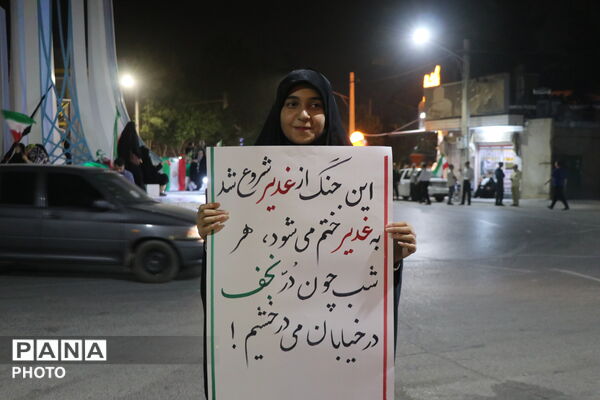 این جنگ از غدیر شروع شد
به غدیر ختم می‌شود، هر
شب چون دُرّ نجف
در خیابان می‌درخشیم!
PANA
PHOTO